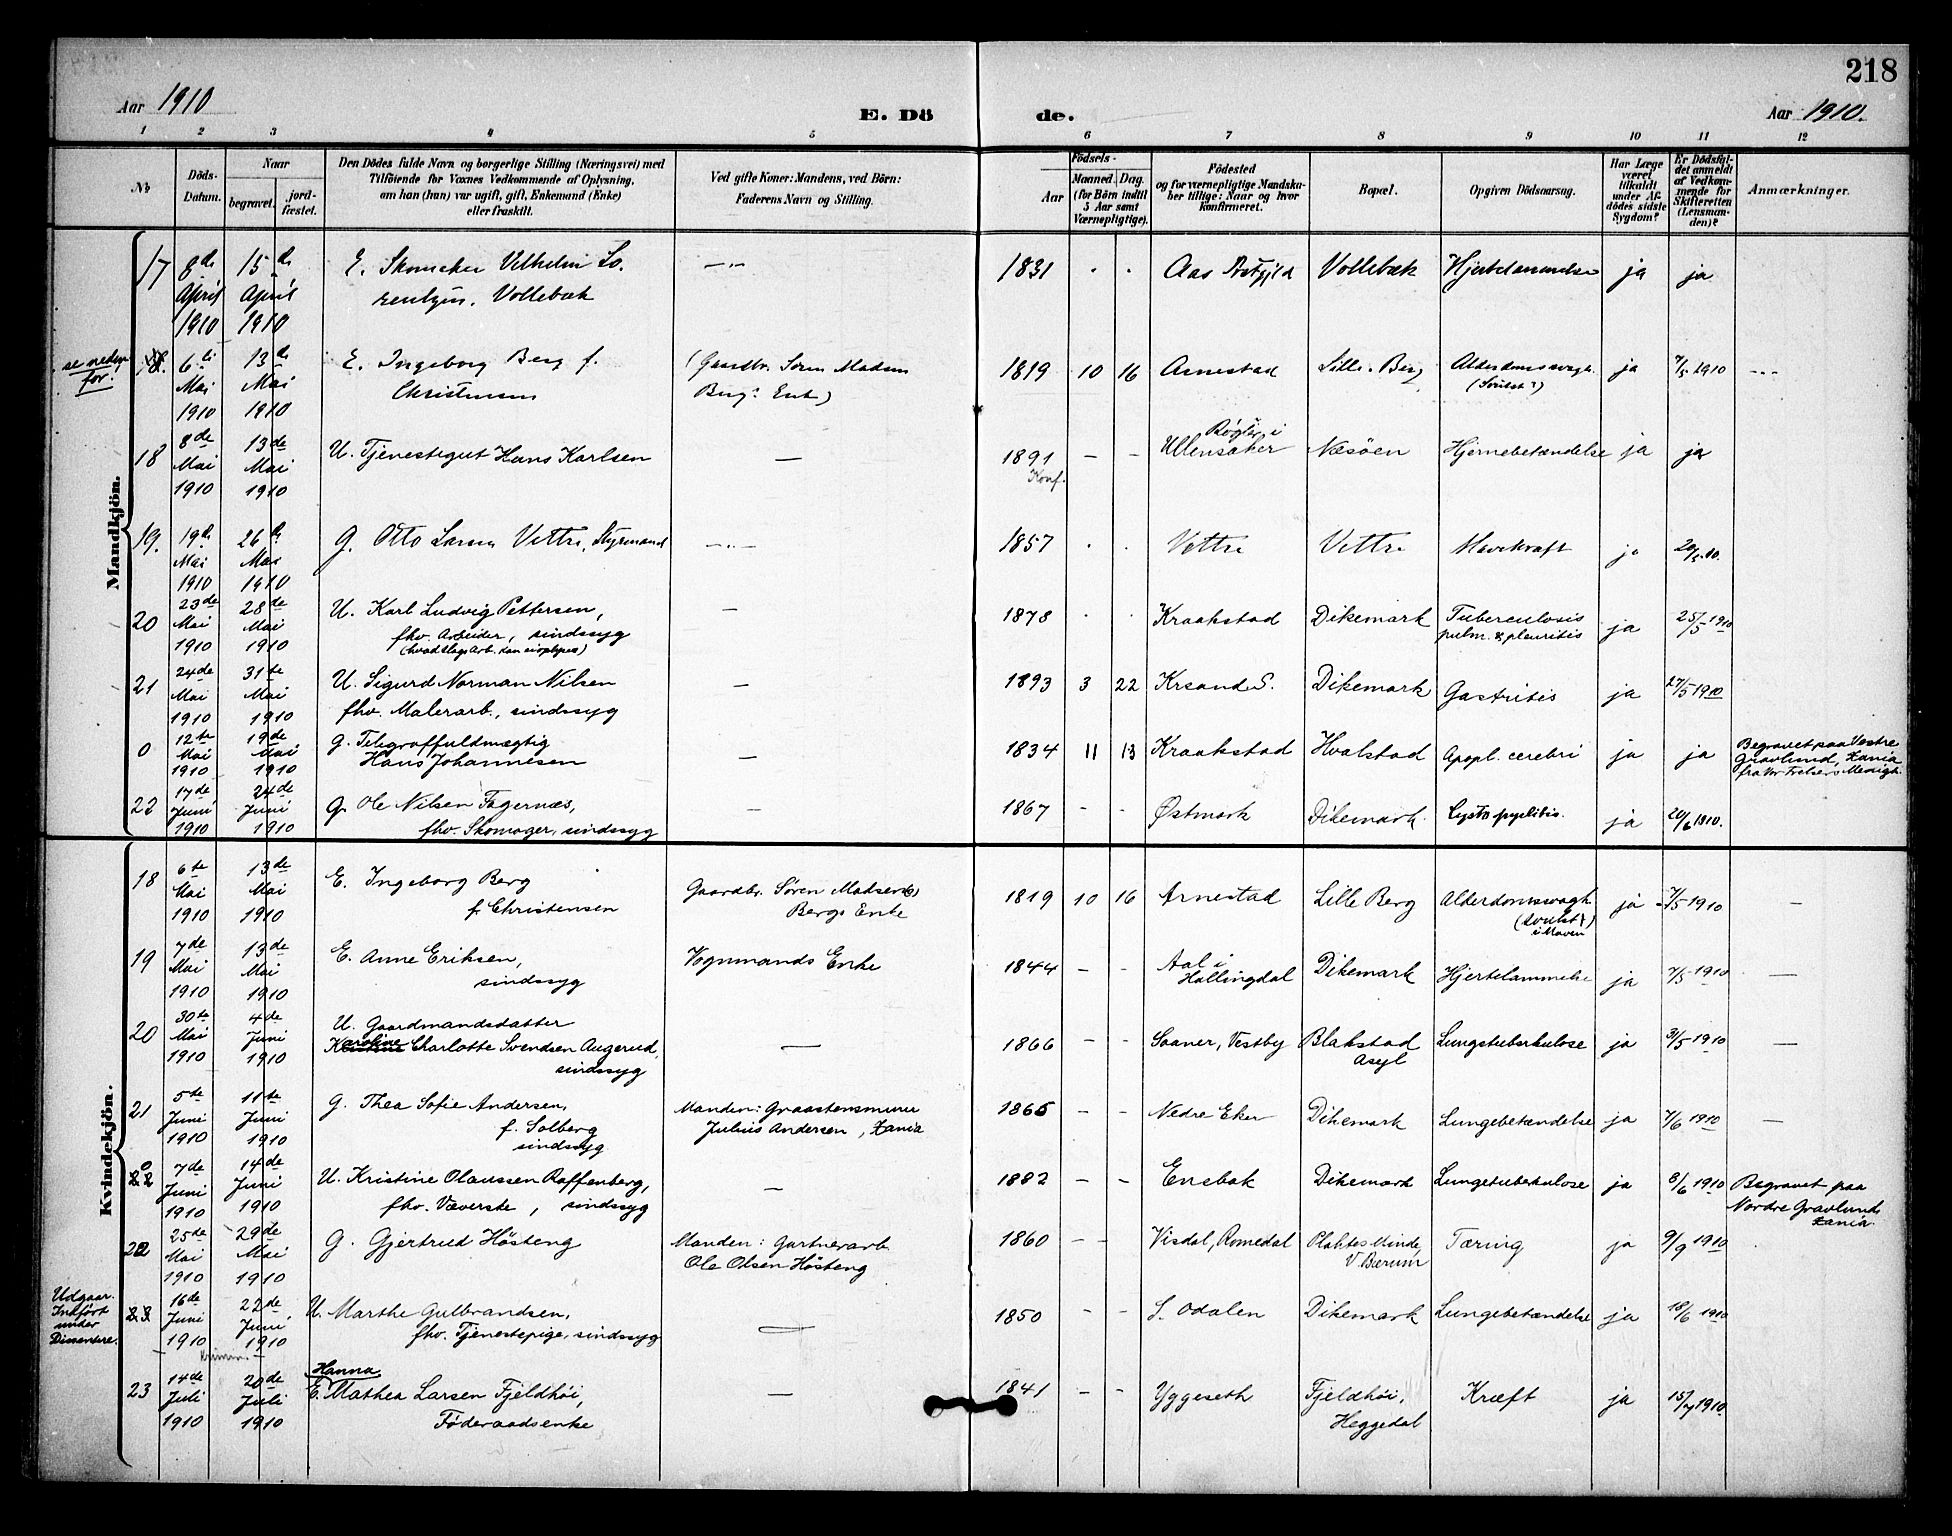 218
Aar 1910
E. Dö
de.
Aar 1910.
1 2 3 4 5 6 7 8 9 10 11 12
No
Döds-Datum.
Naar
begravet.
jord-fæstet.
Den Dödes fulde Navn og borgerlige Stilling (Næringsvei) med
Tilföiende for Voxnes Vedkommende af Oplysning,
om han (hun) var ugift, gift, Enkemand (Enke)
eller fraskilt.
Ved gifte Koner: Mandens, ved Börn:
Faderens Navn og Stilling.
Födsels-
Aar
Maaned. Dag.
(for Börn indtil
5 Aar samt
Værnepligtige).
Födested
og for værnepligtige Mandska-
ber tillige: Naar og hvor
konfirmeret.
Bopæl.
Opgiven Dödsaarsag.
Har Læge
været
tilkaldt
under Af-
dödes sidste
Sygdom?
Er Dödsfal-
det anmeldt
af Vedkom-
mende for
Skifteretten
(Lensman-
den)?
Anmærkninger.
Mandkjön.
17 8de 15de E. Skomaker Vilhelm Lo. — 1831 Aas Vollebæk Hjertelammelse ja ja
April April rentzen. Vollebæk
1910 1910
se neden
for:
18. 6te 13de E. Ingeborg Berg f. (Gaardbr. Søren Madsen 1819 10 16 Arnestad Lille Berg Alderdomssvagh. ja 7/5 1910
Mai Mai Christensen Bergs Enk)
1910 1910
18 8de 13de U. Tjenestegut Hans Karlsen — 1891 — — Ullensaker Næsöen Hjernebetændelse ja ja
Mai Mai Konf.
1910 1910
19. 19de 26de G. Otto Larsen Vettre, Styrmand — 1857 Vettre Vettre Mavekræft ja 20/5 10.
Mai Mai
1910 1910
20 23de 28de U. Karl Ludvig Pettersen, — 1878 Kraakstad Dikemark Tuberculosis ja 25/5 1910
Mai Mai fhv. Arbeider, sindssyg pulm. & pleuritis
1910 1910 (hvadslags Arb. kan ei oplyses)
21 24de 31te U. Sigurd Norman Nilsen — 1893 3 22 Krsand S. Dikemark Gastritis ja 27/5 1910
Mai Mai fhv. Malerarb., sindssyg
1910 1910
0 12te 19de G. Telegraffuldmægtig — 1834 11 13 Kraakstad Hvalstad Apopl. cerebri ja ja Begravet paa Vestre
Mai Mai Hans Johannesen Gravlund, Xania
1910 1910 fra Vor Frelsers Menigh.
22 17de 24de G. Ole Nilsen Fagernæs, — 1867 — — Østmark Dikemark. ja 20/6 1910.
Juni Juni fhv. Skomager, sindssyg
1910 1910
Kvindekjön.
18 6te 13de E. Ingeborg Berg Gaardbr. Søren Madsen 1819 10 16 Arnestad Lille Berg Alderdomssvagh. ja 7/5 1910 —
Mai Mai f. Christensen Bergs Enke (svulst?)
1910 1910 i Maven
19 7de 13de E. Anne Eriksen, Vognmands Enke 1844 — — Aal i Dikemark Hjertelammelse ja 7/5 1910 —
Mai Mai sindssyg Hallingdal
1910 1910
20 30te 4de U. Gaardmandsdatter — 1866 — — Soaner, Vestby Blakstad Lungetuberkulose ja 31/5 1910 —
Mai Juni Karoline Charlotte Svendsen Augerud, Asyl
1910 1910 sindssyg
21 5te 11te G. Thea Sofie Andersen, Manden: Graastensminer 1865 — — Nedre Eker Dikemark Lungebetændelse ja 7/6 1910 —
Juni Juni f. Solberg Julius Andersen, Xania
1910 1910 sindssyg
0
22 7de 14de U. Kristine Olaussen Roffenberg, — 1882 — — Enebak Dikemark Lungetuberkulose ja 8/6 1910 Begravet paa
Juni Juni fhv. Væverske, sindssyg Nordre Gravlund
1910 1910 Xania.
22 25de 29de G. Gjertrud Hösteng Manden: Gartnerarb. 1860 — — Visdal, Romedal Plahtes Minde, Tæring ja 9/9 1910
Mai Mai Ole Olsen Hösteng V. Bærum
1910 1910
Udgaar.
Indfört
under
Dissentere.
23 16de 22de U. Marthe Gulbrandsen, — 1850 — — S. Odalen Dikemark Lungebetændelse ja 18/6 1910
Juni Juni fhv. Tjenestepige, sindssyg
1910 1910
Hanna
23 14de 20de E. Mathea Larsen Fjeldhöi, — 1841 — — Yggeseth Fjeldhöi, Kræft ja 15/7 1910.
Juli Juli Föderaadsenke Heggedal
1910 1910